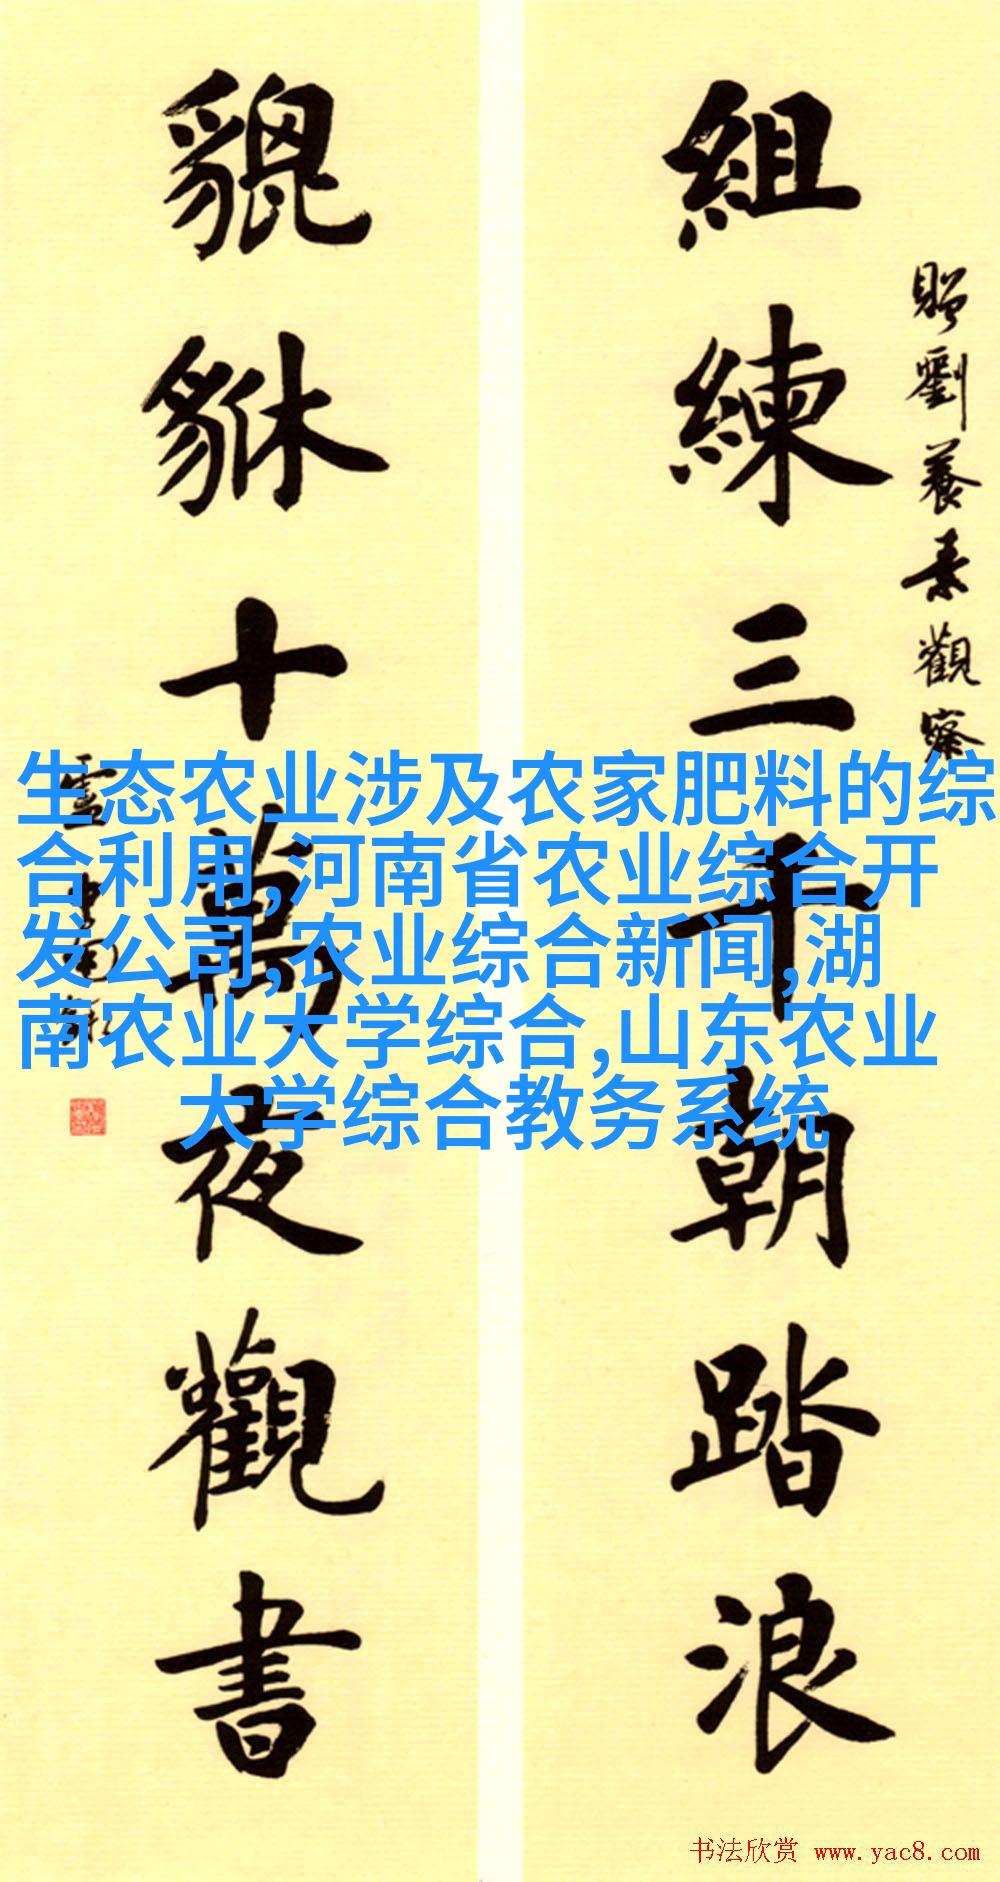 組練三千朝踏浪
贈劉養素觀察
貔貅十萬夜觀書
生态农业涉及农家肥料的综
合利用,河南省农业综合开
发公司,农业综合新闻,湖
南农业大学综合,山东农业
大学综合教务系统
书法欣赏 www.yac8.com